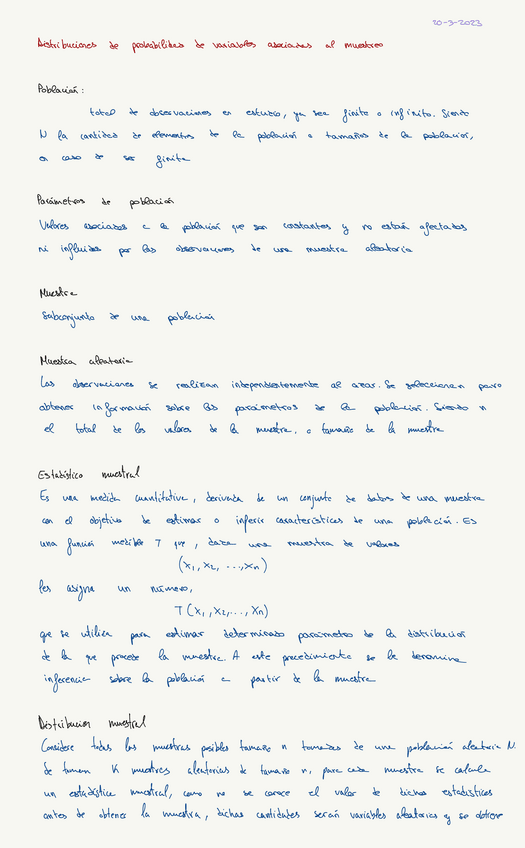 20-3-2023
Distribuciones de probabilidad de variables asociadas al muestreo
Población:
total de observaciones en estudio, ya sea finito o infinito. Siendo
N la cantidad de elementos de la población o tamaños de la población,
en caso de ser finita
Parámetros de población
Valores asociados a la población que son constantes y no están afectados
ni influidos por las observaciones de una muestra aleatoria
Muestra
Subconjunto de una población
Muestra aleatoria
Las observaciones se realizan independientemente al azar. Se seleccionan para
obtener información sobre los parámetros de la población. Siendo n
el total de los valores de la muestra, o tamaño de la muestra
Estadístico muestral
Es una medida cuantitativa, derivada de un conjunto de datos de una muestra
con el objetivo de estimar o inferir características de una población. Es
una función medible T que, dada una muestra de valores
(x₁, x₂, ..., xₙ)
les asigna un número,
T(x₁, x₂, ..., xₙ)
que se utiliza para estimar determinado parámetro de la distribución
de la que procede la muestra. A este procedimiento se le denomina
inferencia sobre la población a partir de la muestra
Distribucion muestral
Considere todas las muestras posibles tamaño n tomadas de una población aleatoria N.
Se toman K muestras aleatorias de tamaño n, para cada muestra se calcula
un estadístico muestral, como no se conoce el valor de dichos estadísticos
antes de obtener la muestra, dichas cantidades serán variables aleatorias y se obtiene